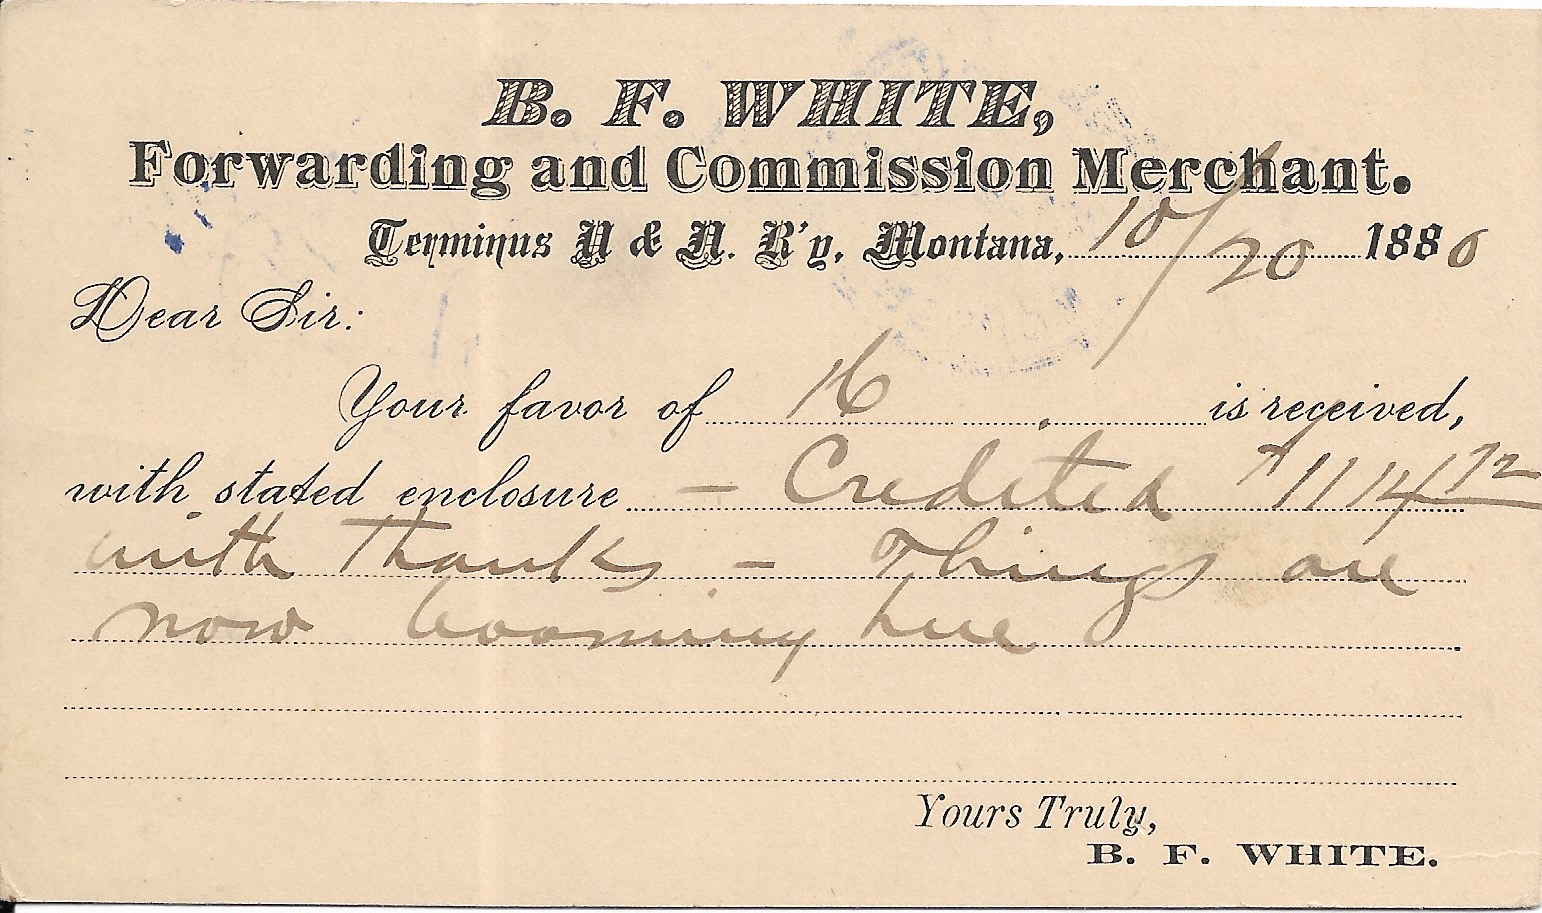 B. F. WHITE,
Forwarding and Commission Merchant.
Terminus U & N. R'y, Montana, 10/20 1880
Dear Sir:
Your favor of 16 is received,
with stated enclosure — Credited $1114 72
with thanks — Things are
now booming here
Yours Truly,
B. F. WHITE.